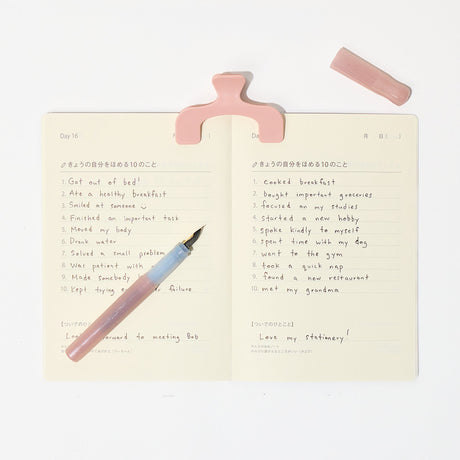 Day 16
月
)
きょうの自分をほめる10のこと
1. Got out of bed!
2. Ate a healthy breakfast
3. Smiled at someone
4. Finished an important task
5. Moved my body
6. Drank water
7. Solved a small problem
8. Was patient with
9. Made somebody
10. Kept trying failure
【ついでのひとこと】
forward to meeting Bob
月 日( )
きょうの自分をほめる10のこと
1. cooked breakfast
2. bought important groceries
3. focused on my studies
4. started a new hobby
5. spoke kindly to myself
6. spent time with my dog
7. went to the gym
8. took a quick nap
9. found a new restaurant
10. met my grandma
【ついでのひとこと】
Love my stationery!